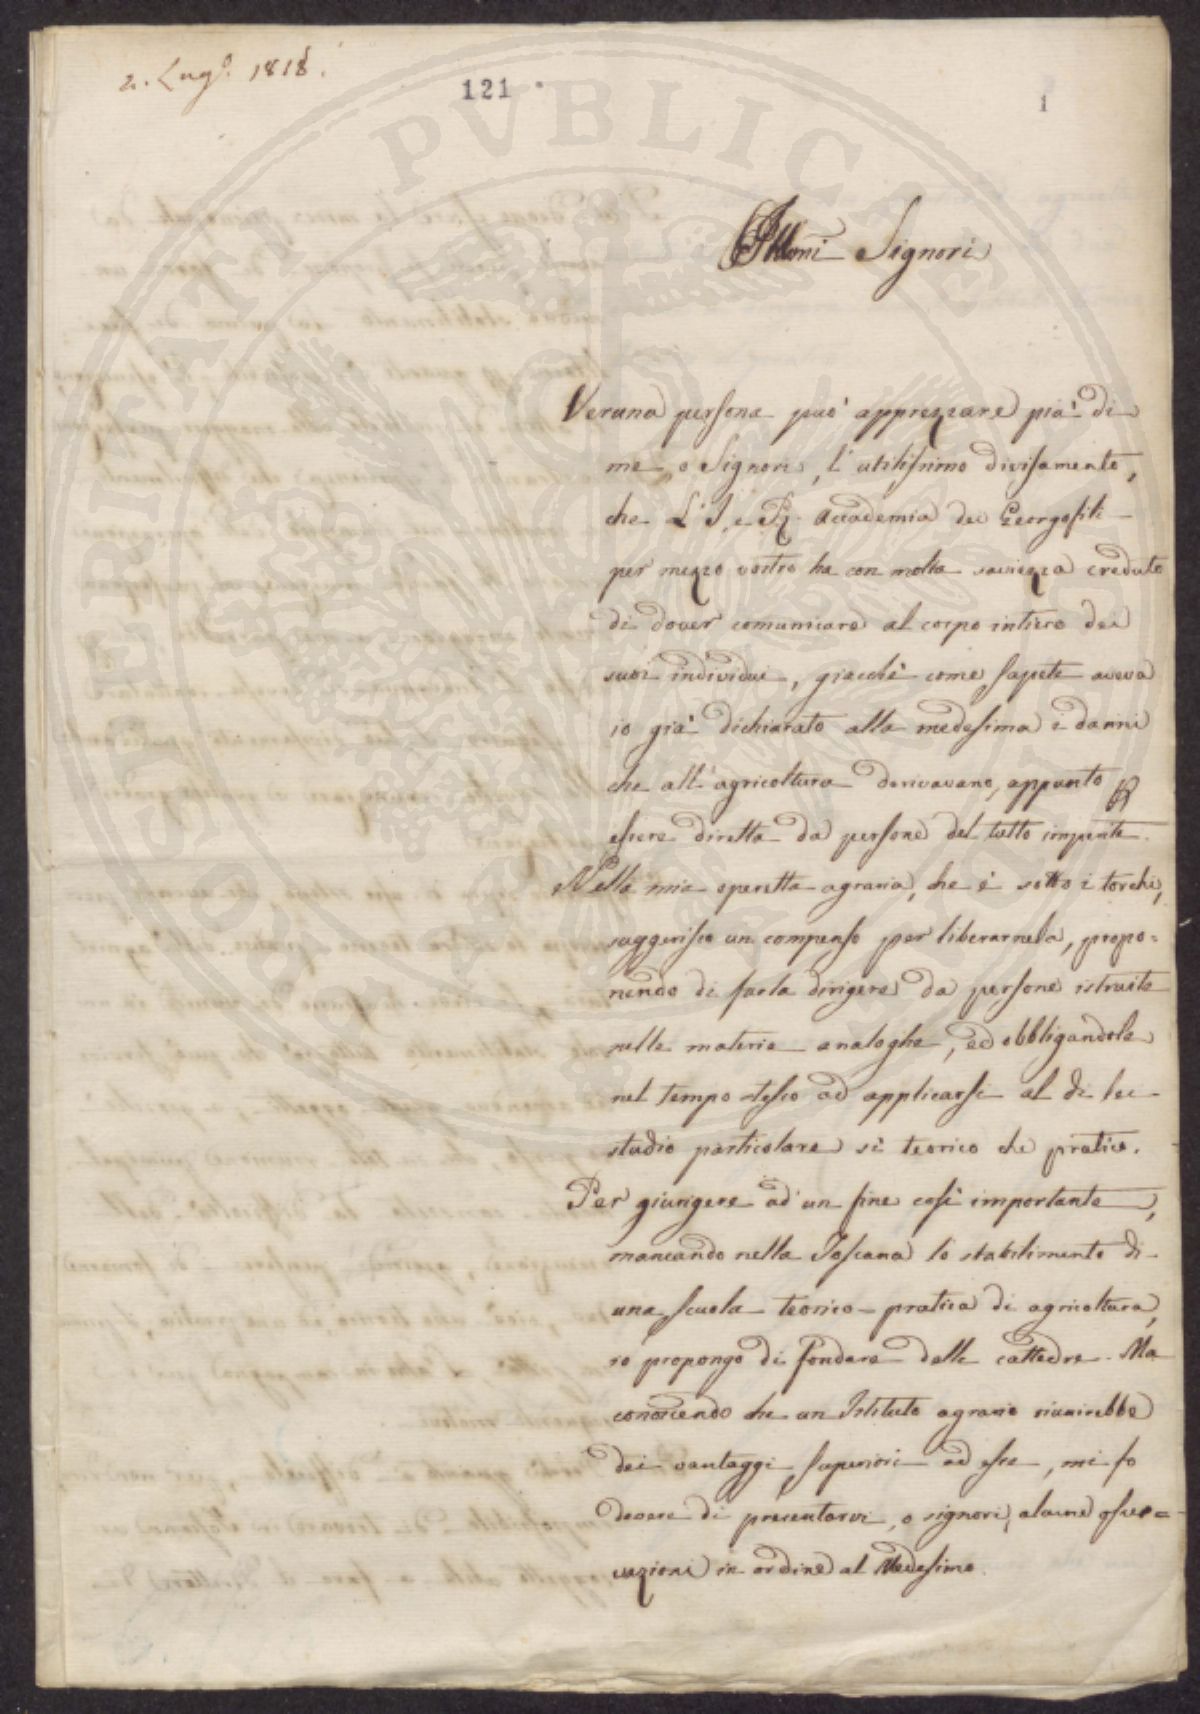 2. Lug.º 1818.
121
1
PROSPERITATI PVBLICAE AVGENDAE
Illmi Signori
Veruna persona può apprezzare più di
me, o Signori, l'utilissimo divisamento,
che L'I. e R. Accademia dei Georgofili
per mezzo vostro ha con molta saviezza creduto
di dover comunicare al corpo intiero dei
suoi individui, giacchè come sapete aveva
io già dichiarato alla medesima i danni
che all'agricoltura derivavano, appunto
essere diretta da persone del tutto imperite.
Nella mia operetta agraria, che è sotto i torchi,
suggerisco un compenso per liberarnela, propo=
nendo di farla dirigere da persone istruite
nelle materie analoghe, ed obbligandole
nel tempo stesso ad applicarsi al di lei
studio particolare sì teorico che pratico.
Per giungere ad un fine così importante,
mancando nella Toscana lo stabilimento di
una scuola teorico-pratica di agricoltura,
io propongo di fondare delle cattedre. Ma
conoscendo che un Istituto agrario riunirebbe
dei vantaggi superiori ad esse, mi fo
dovere di presentarvi, o signori, alcune osser=
vazioni in ordine al Medesimo.